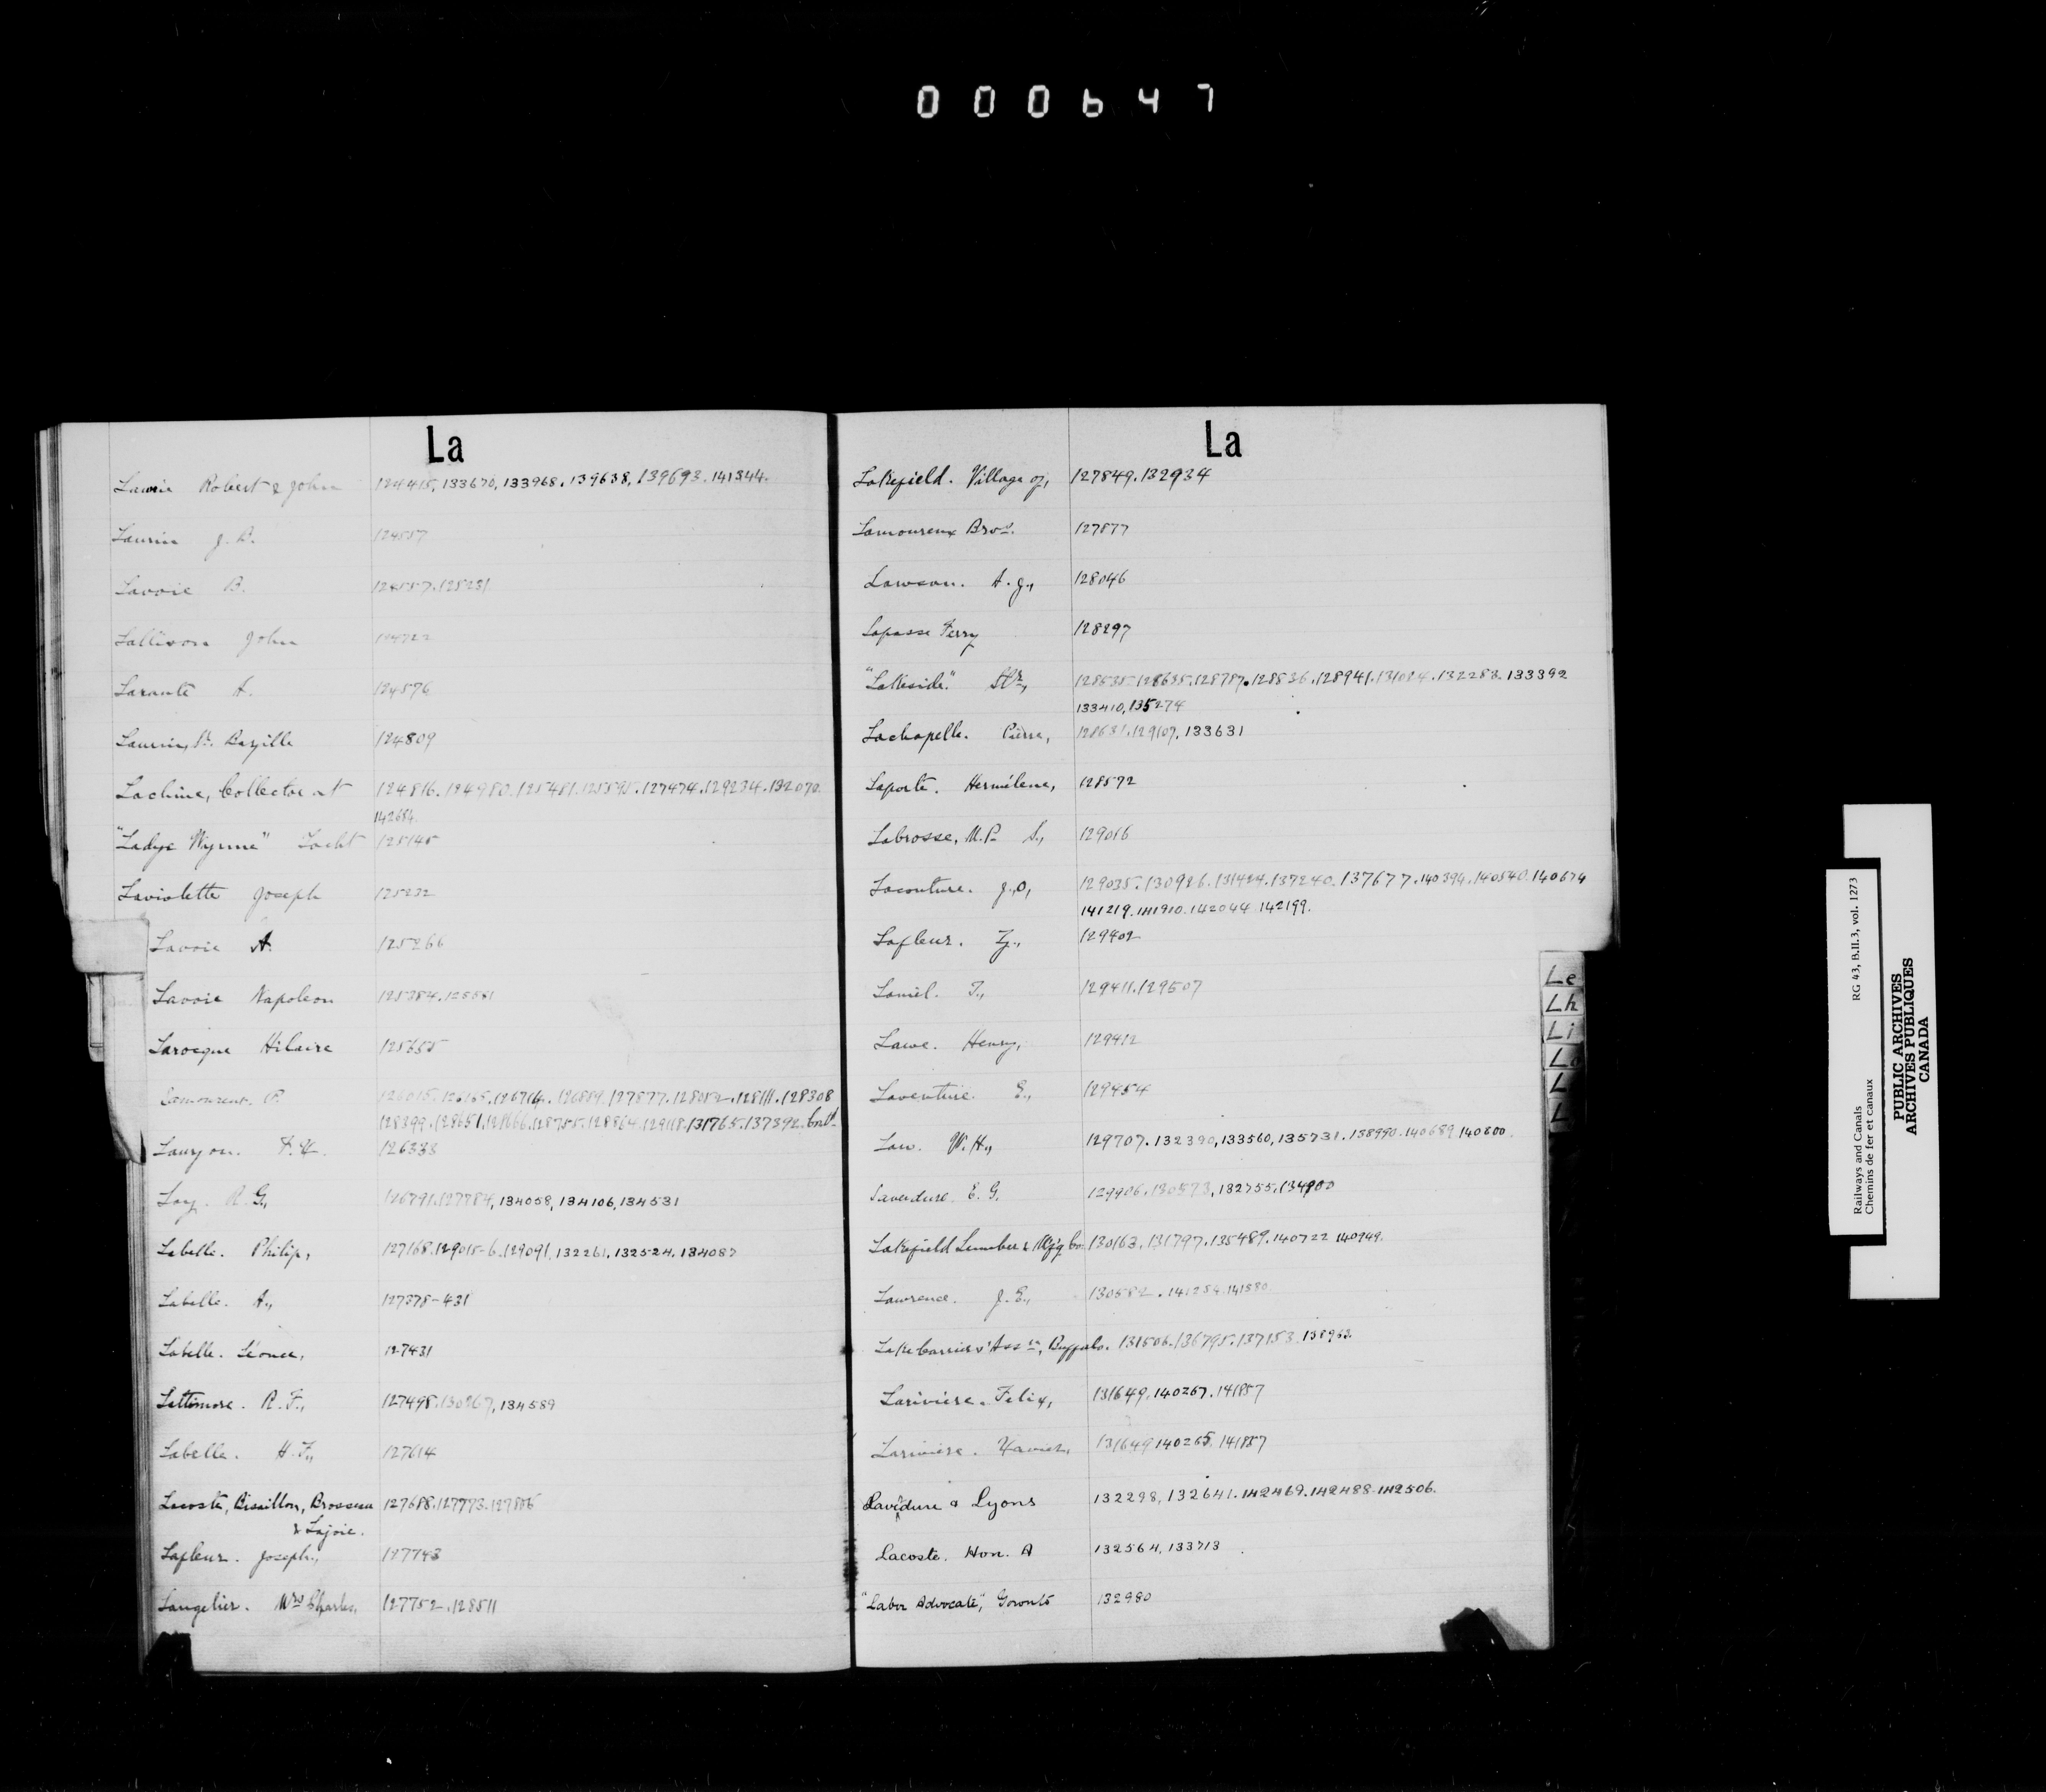 000647
La
Lawrie Robert & John 124415, 133670, 133968. 139638, 139693. 141344.
Laurin J. B. 124557
Lavoie B. 124557. 125231
Lallison John 124722
Larante A. 124576
Laurin, St. Bazille 124809
Lachine, Collector at 124816. 124980. 125481. 125595. 127474. 129234. 132070.
142684.
"Ladye Wynne" Yacht 125145
Laviolette Joseph 125232
Lavoie A. 125266
Lavoie Napoleon 125384. 125581
Larocque Hilaire 125655
Lamoureux. P. 126015. 126165. 126714. 126889. 127877. 128082. 128111. 128308
128399. 128651. 128666. 128755. 128864. 129118. 131765. 137392. Cont.
Lauzon. 126338
Lay. R. G., 126791. 127784, 134058, 134106, 134531
Labelle. Philip, 127168. 129015-6. 129091, 132261, 132524, 134087
Labelle. A., 127378-431
Labelle. Léonce, 127431
Lattimore. R. F., 127498. 130267, 134589
Labelle. H. F., 127614
Lacoste, Bisaillon, Brosseau 127688. 127773. 127806
& Lajoie.
Lafleur. Joseph., 127743
Langelier. Mrs Charles, 127752. 128511
La
Lakefield. Village of, 127849. 132934
Lamoureux Bros. 127877
Lawson. A. J., 128046
Lapasse Ferry 128297
"Lakeside." Str, 128535. 128635. 128787. 128836. 128941. 131024. 132283. 133392
133410, 135274
Lachapelle. Pierre, 128631. 129107. 133631
Laporte. Hermélene, 128572
Labrosse, M.P. S., 129066
Lacouture. J. O, 129035. 130926. 131424. 137240. 137677. 140394. 140540. 140674
141219. 141910. 142044. 142199.
Lafleur. Z., 129402
Lamel. T., 129411. 129507
Lawe. Henry, 129412
Laventure. E., 129454
Law. W. H., 129707. 132390, 133560, 135731. 138990. 140689 140800.
Laverdure. E. G. 129906. 130573, 132755. 134900
Lakefield Lumber & Mf'g Co. 130163. 131797. 135489. 140722 140949.
Lawrence. J. E., 130582. 141254. 141580
Lake Carriers' Assn, Buffalo. 131506. 136795. 137153. 138963
Lariviere. Felix, 131649, 140267. 141857
Lariviere. Xavier, 131649 140265. 141857
Laverdure & Lyons 132298, 132641. 142469. 142488. 142506.
Lacoste. Hon. A 132564, 133713
"Labor Advocate", Toronto 132980
Le
Lh
Li
Lo
L
L
Railways and Canals RG 43, B.II.3, vol. 1273
Chemins de fer et canaux
PUBLIC ARCHIVES
ARCHIVES PUBLIQUES
CANADA